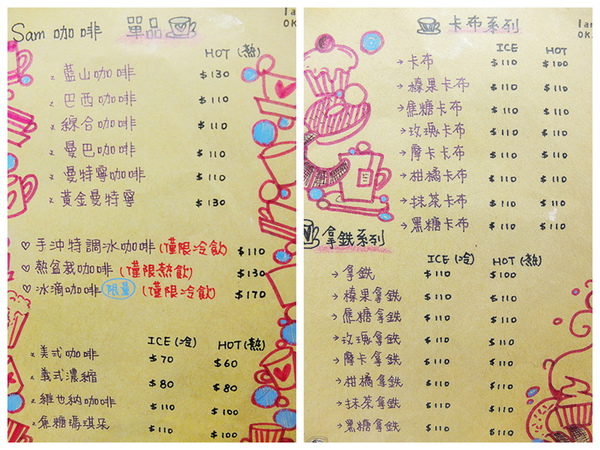 Sam 咖啡 單品
HOT (熱)
藍山咖啡 $130
巴西咖啡 $110
綜合咖啡 $110
曼巴咖啡 $110
曼特寧咖啡 $110
黃金曼特寧 $130
♡手沖特調冰咖啡(僅限冷飲) $110
♡熱盆栽咖啡(僅限熱飲) $130
♡冰滴咖啡 限量 (僅限冷飲) $170
ICE (冷) HOT (熱)
美式咖啡 $70 $60
義式濃縮 $80 $80
維也納咖啡 $110 $100
焦糖瑪琪朵 $110 $100
卡布系列
ICE HOT
→卡布 $110 $100
→榛果卡布 $110 $110
→焦糖卡布 $110 $110
→玫瑰卡布 $110 $110
→摩卡卡布 $110 $110
→柑橘卡布 $110 $110
→抹茶卡布 $110 $110
→黑糖卡布 $110 $110
拿鐵系列
ICE (冷) HOT (熱)
→拿鐵 $110 $100
→榛果拿鐵 $110 $110
→焦糖拿鐵 $110 $110
→玫瑰拿鐵 $110 $110
→摩卡拿鐵 $110 $110
→柑橘拿鐵 $110 $110
→抹茶拿鐵 $110 $110
→黑糖拿鐵 $110 $110